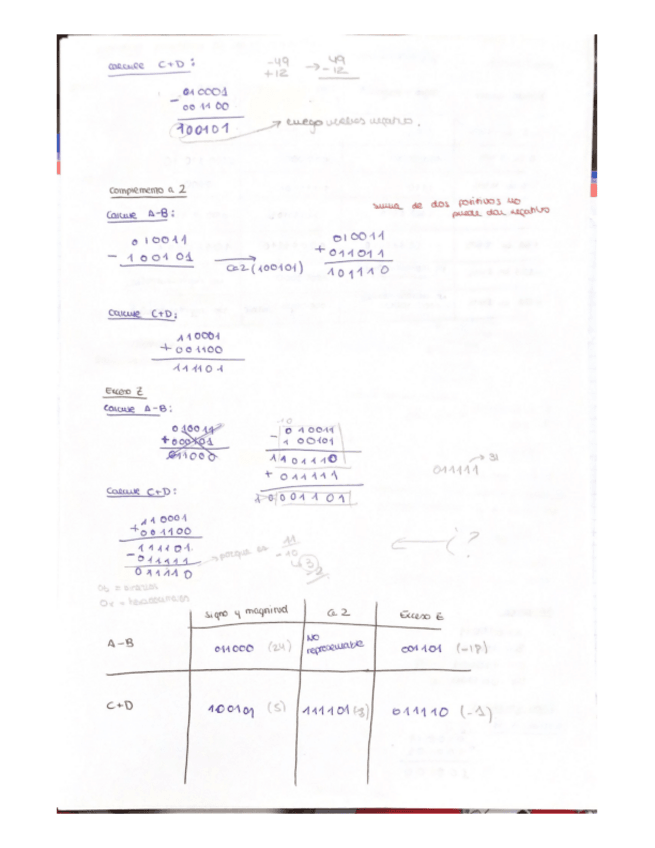 calcule C+D:
-49 → 49
+12 - 12
010001
- 001100
100101 → luego
Complemento a 2
suma de dos positivos no
puede dar negativo
Calcule A-B:
010011 010011
- 100101 → Ca2(100101) + 011011
101110
Calcule C+D:
110001
+ 001100
111101
Exceso Z
Calcule A-B:
010011 010011
+ 000101 - 100101
011000 1101110
+ 011111
001101
011111 → 31
Calcule C+D:
110001
+ 001100
111101
- 011111 → porque es 11
011110 - 10
← ¿?
signo y magnitud Ca2 Exceso
A-B 011000 (24) NO representable 001101 (-18)
C+D 100101 (5) 111101 (3) 011110 (-1)